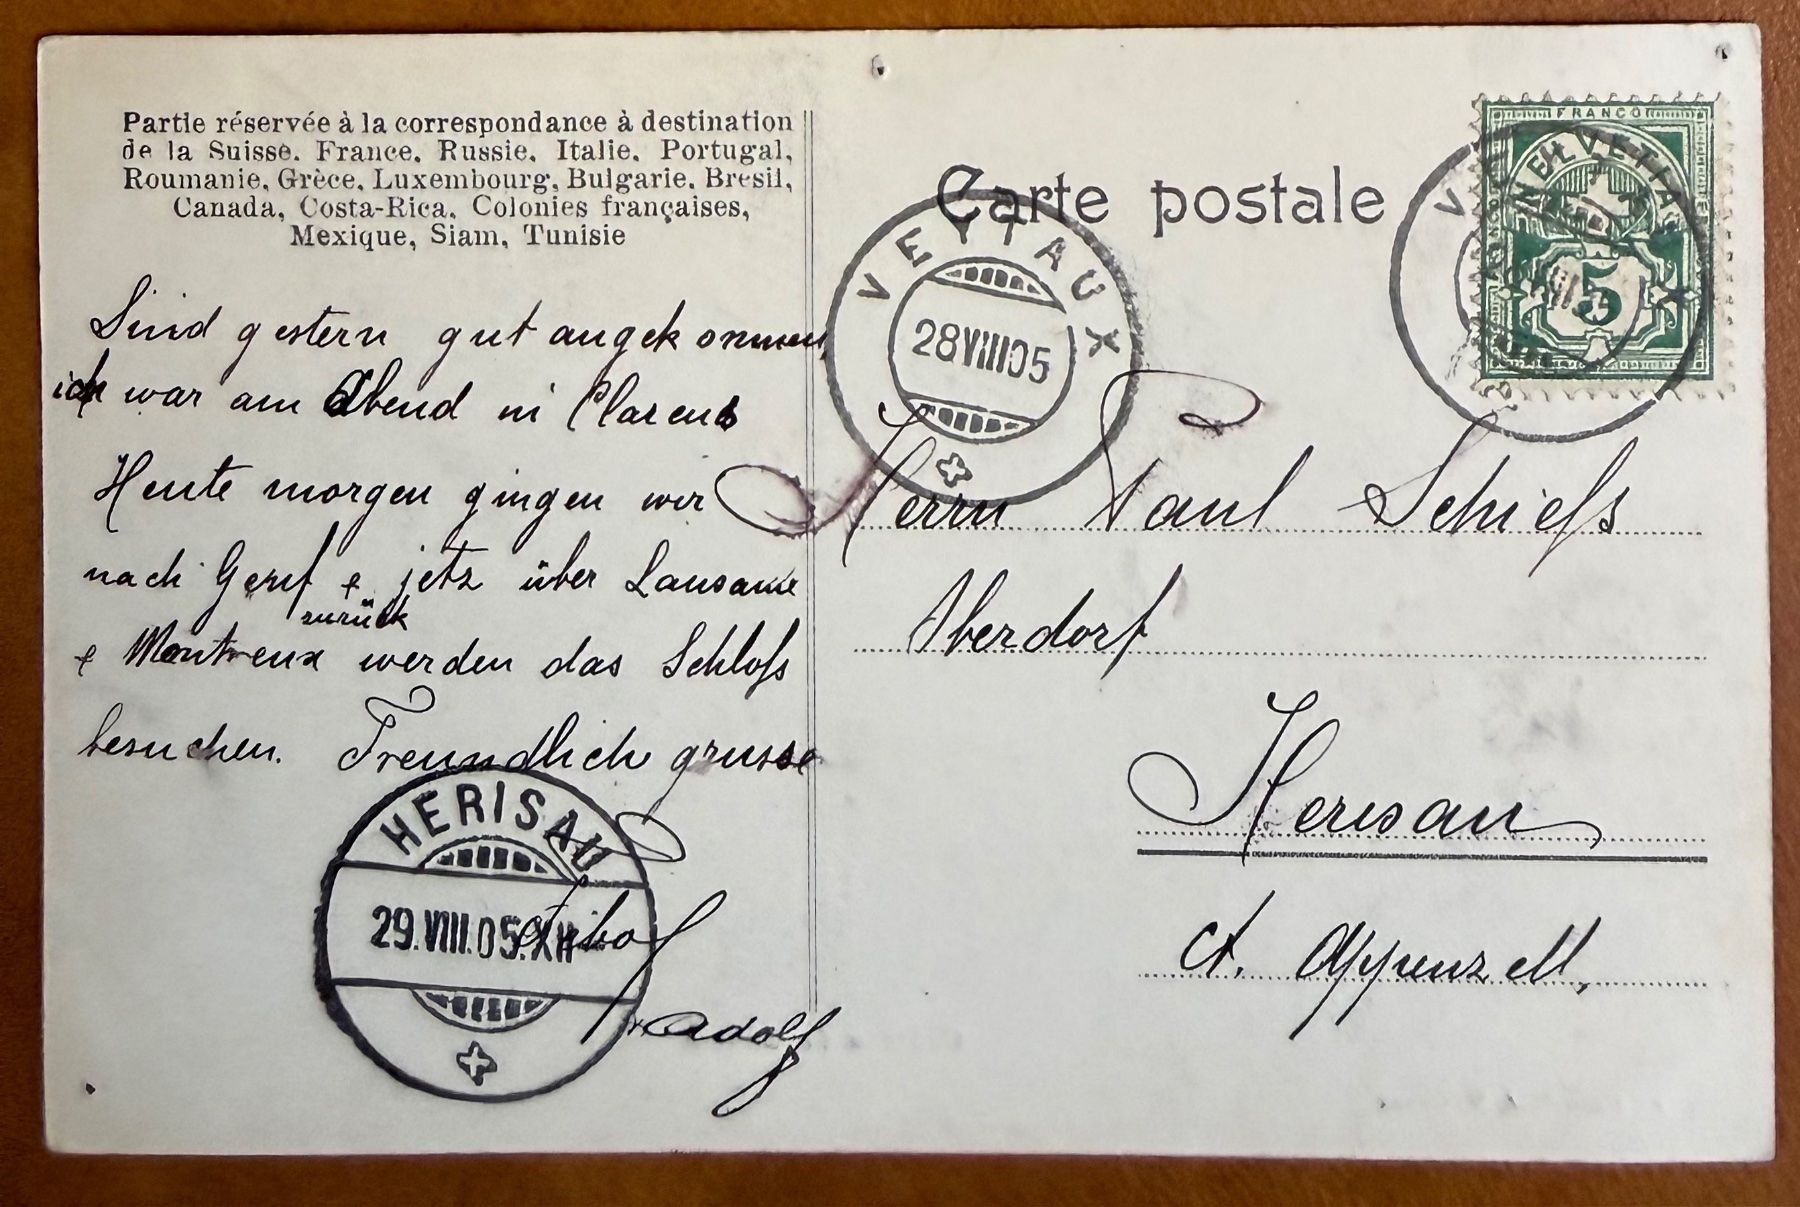 Partie réservée à la correspondance à destination
de la Suisse. France. Russie. Italie. Portugal,
Roumanie. Grèce. Luxembourg. Bulgarie. Bresil,
Canada, Costa-Rica. Colonies françaises,
Mexique, Siam, Tunisie
Sind gestern gut angekommen,
ich war am Abend in Clarens
Heute morgen gingen wir
nach Genf & jetz über Lausanne
zurück
& Montreux werden das Schloß
besuchen. Freundlich grusse
Adolf
HERISAU
29.VIII.05.XII
Carte postale
VEYTAUX
28 VIII 05
FRANCO
HELVETIA
5
Herrn Paul Schieß
Oberdorf
Herisau
Ct. Appenzell,